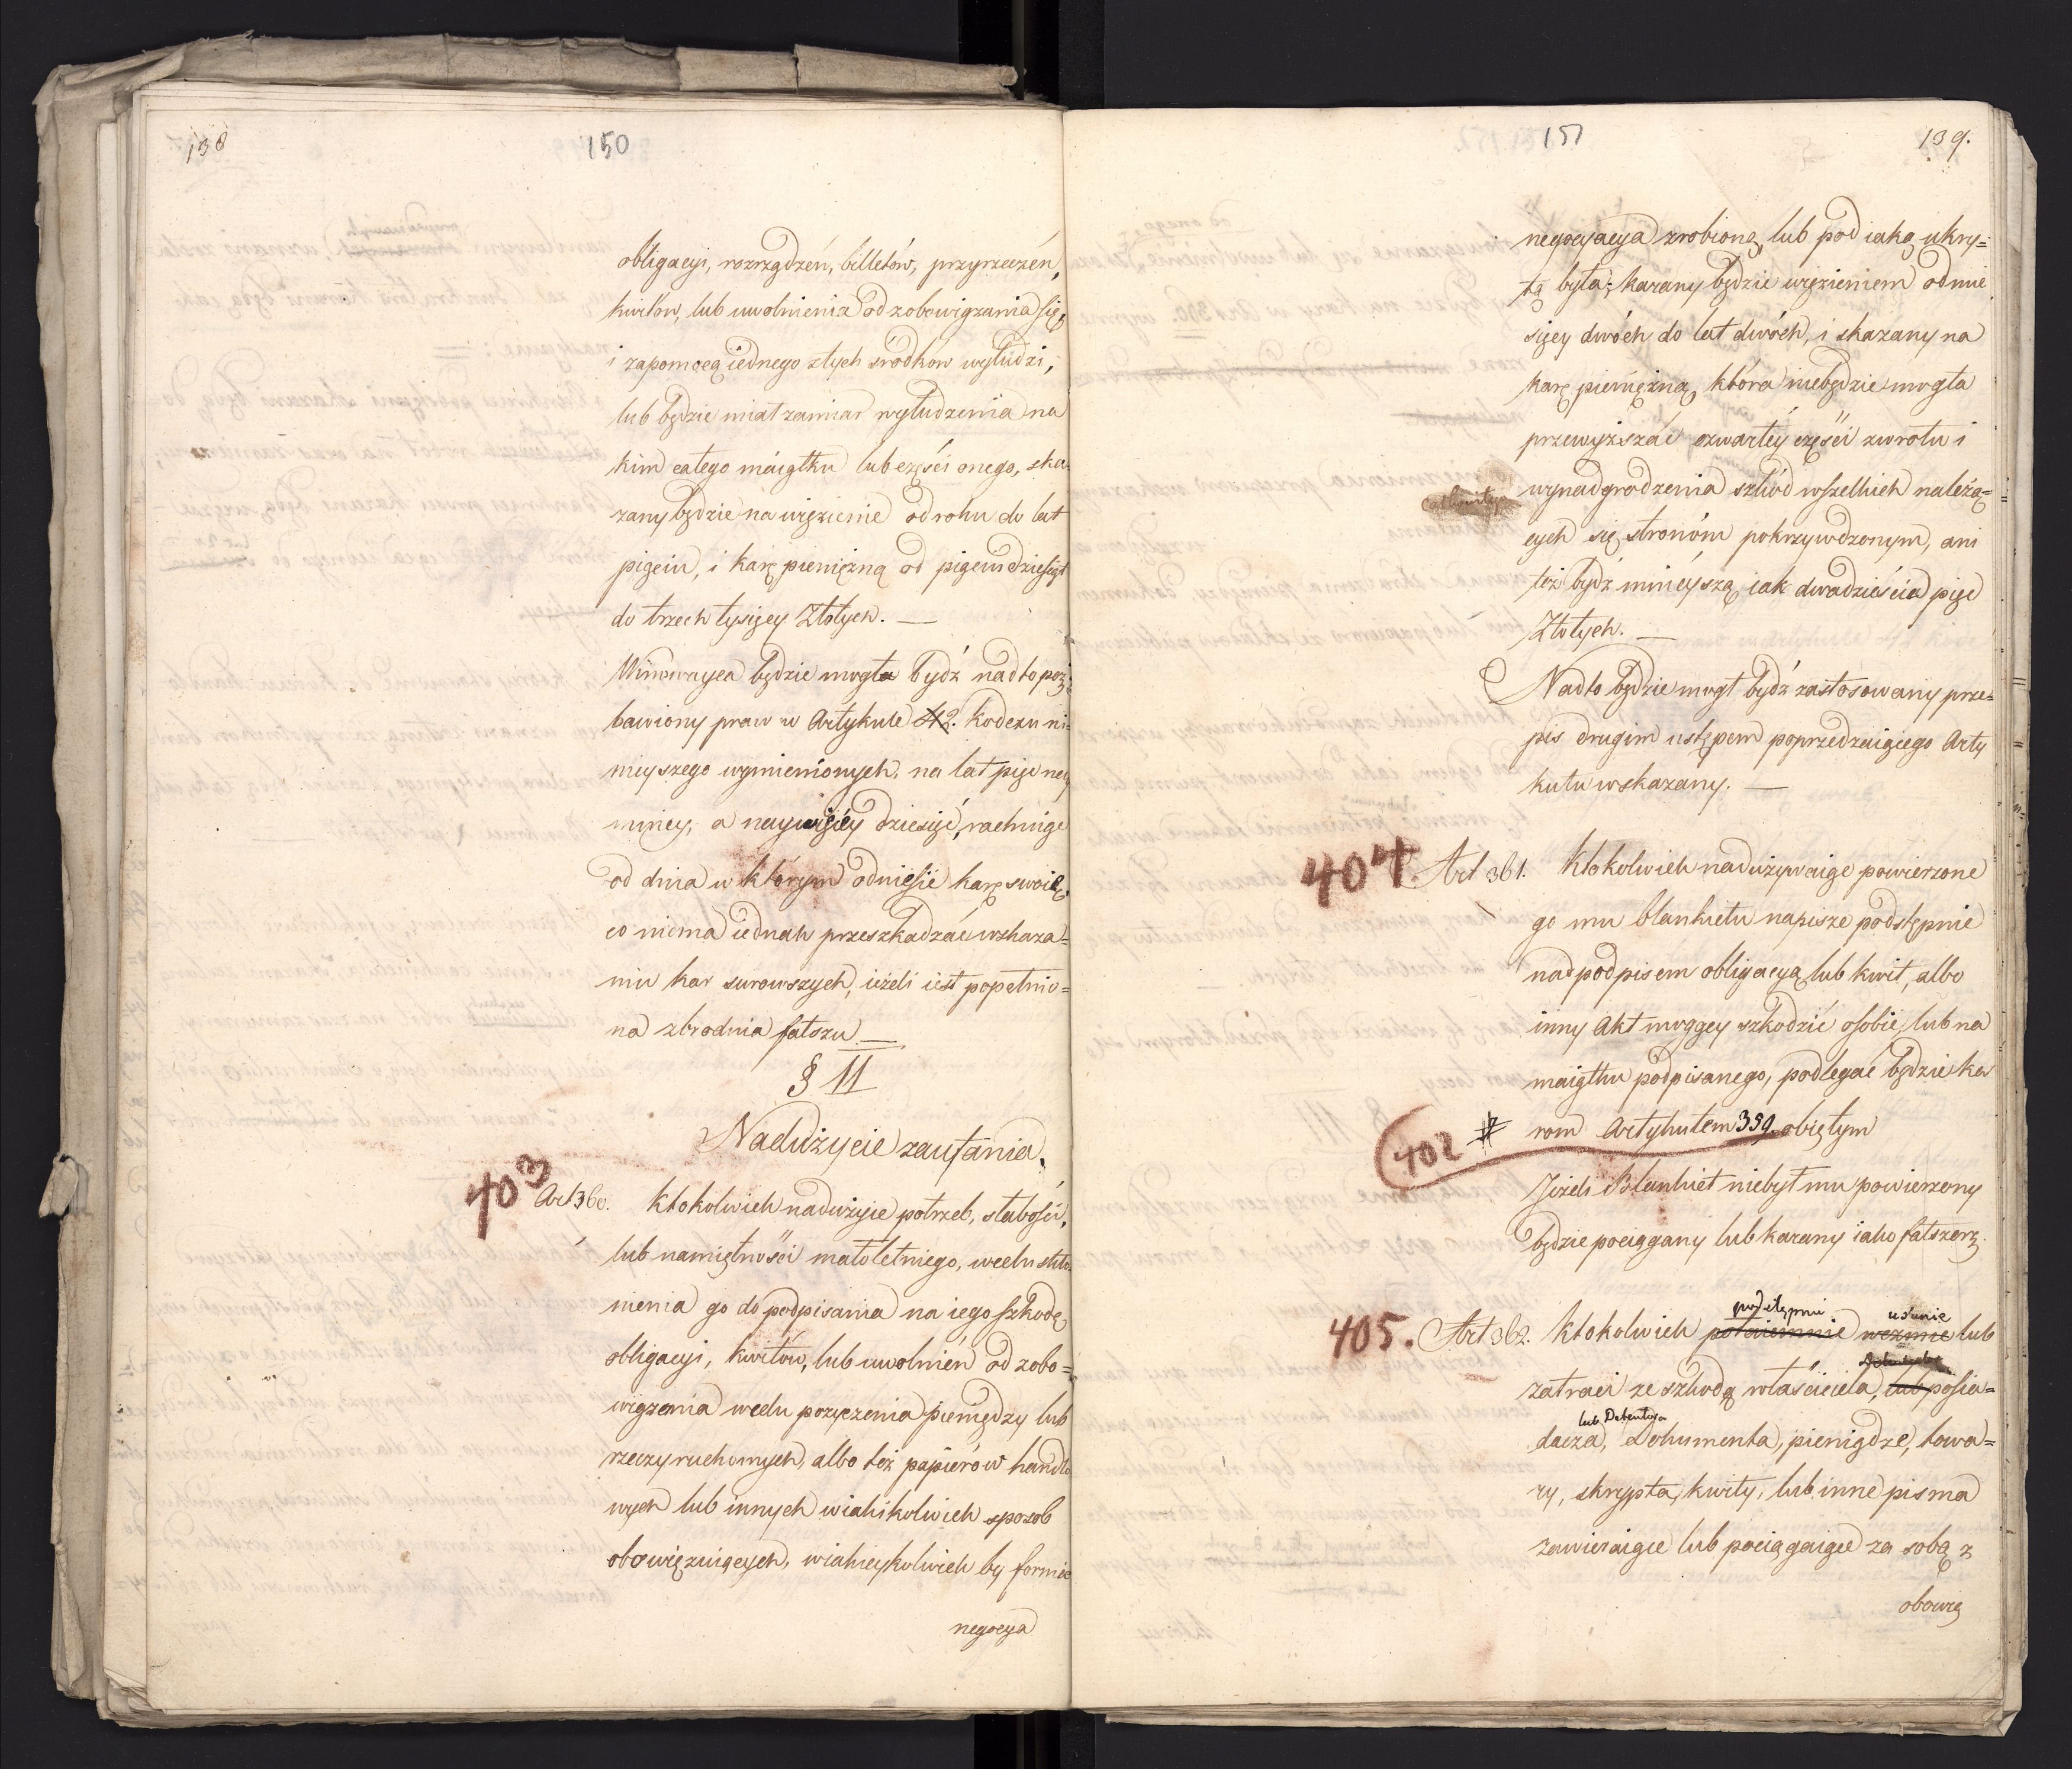 138
150
obligacyi, rozrządzeń, billetów, przyrzeczeń,
kwitów, lub uwolnienia od zobowiązania się,
i zapomocą iednego ztych środków wyłudzi,
lub będzie miał zamiar wyłudzenia na
kim całego maiątku lub części onego, ska-
zany będzie na więzienie od roku do lat
pięciu, i karę pieniężną od pięciudziesiąt
do trzech tysięcy Złotych. —
Winowayca będzie mogła bydź nadto poz-
bawiony praw w Artykule 42. kodexu ni-
nieyszego wymienionych, na lat pięć nay
mniey, a naywięcéy dziesięć, rachuiąc
od dnia w którym odniesie karę swoię,
co niema iednak przeszkadzać wskaza-
niu kar surowszych, ieżeli iest popełnio-
na zbrodnia fałszu. —
§ II
Nadużycie zaufania.
403 Art 360. Ktokolwiek nadużyie potrzeb, słabości,
lub namiętności małoletniego, wcelu skło-
nienia go do podpisania na iego szkodę
obligacyi, kwitów, lub uwolnień od zobo-
wiązania wcelu pożyczenia pieniędzy lub
rzeczy ruchomych, albo też papierów handlo
wych lub innych wiakikolwiek sposob
obowięzuiących, wiakieykolwiek by formie
negocya
151
139.
negocyacya zrobioną, lub pod iaką ukry-
tą była; karany będzie więzieniem od mie
sięcy dwóch do lat dwóch, i skazany na
karę pieniężną, która niebędzie mogła
przewyższać czwartéy części zwrotu i
wynadgrodzenia szkód wszelkich należą-
cych się stronóm pokrzywdzonym, ani
też bydź mnieyszą iak dwadzieścia pięć
Złotych. —
Nadto będzie mógł bydź zastosowany prze-
pis drugim ustępem poprzedzaiącego Arty
kułu wskazany. —
404. Art 361. Ktokolwiek nadużywaiąc powierzone
go mu blankietu napisze podstępnie
nad podpisem obligacyą lub kwit, albo
inny Akt mogący szkodzić osobie, lub na
maiątku podpisanego, podlegać będzie ka
402 # rom Artykułem 359. obiętym
Jeżeli Blankiet niebył mu powierzony
będzie pociągany lub karany iako fałszerz.
podstępnie usunie
405. Art 362. Ktokolwiek potaiemnie weźmie lub
zatraci ze szkodą właściciela, lub posia-
lub Detentora
dacza, Dokumenta, pieniądze, towa-
ry, skrypta, kwity, lub inne pisma
zawieraiące lub pociągaiące za sobą z
obowią